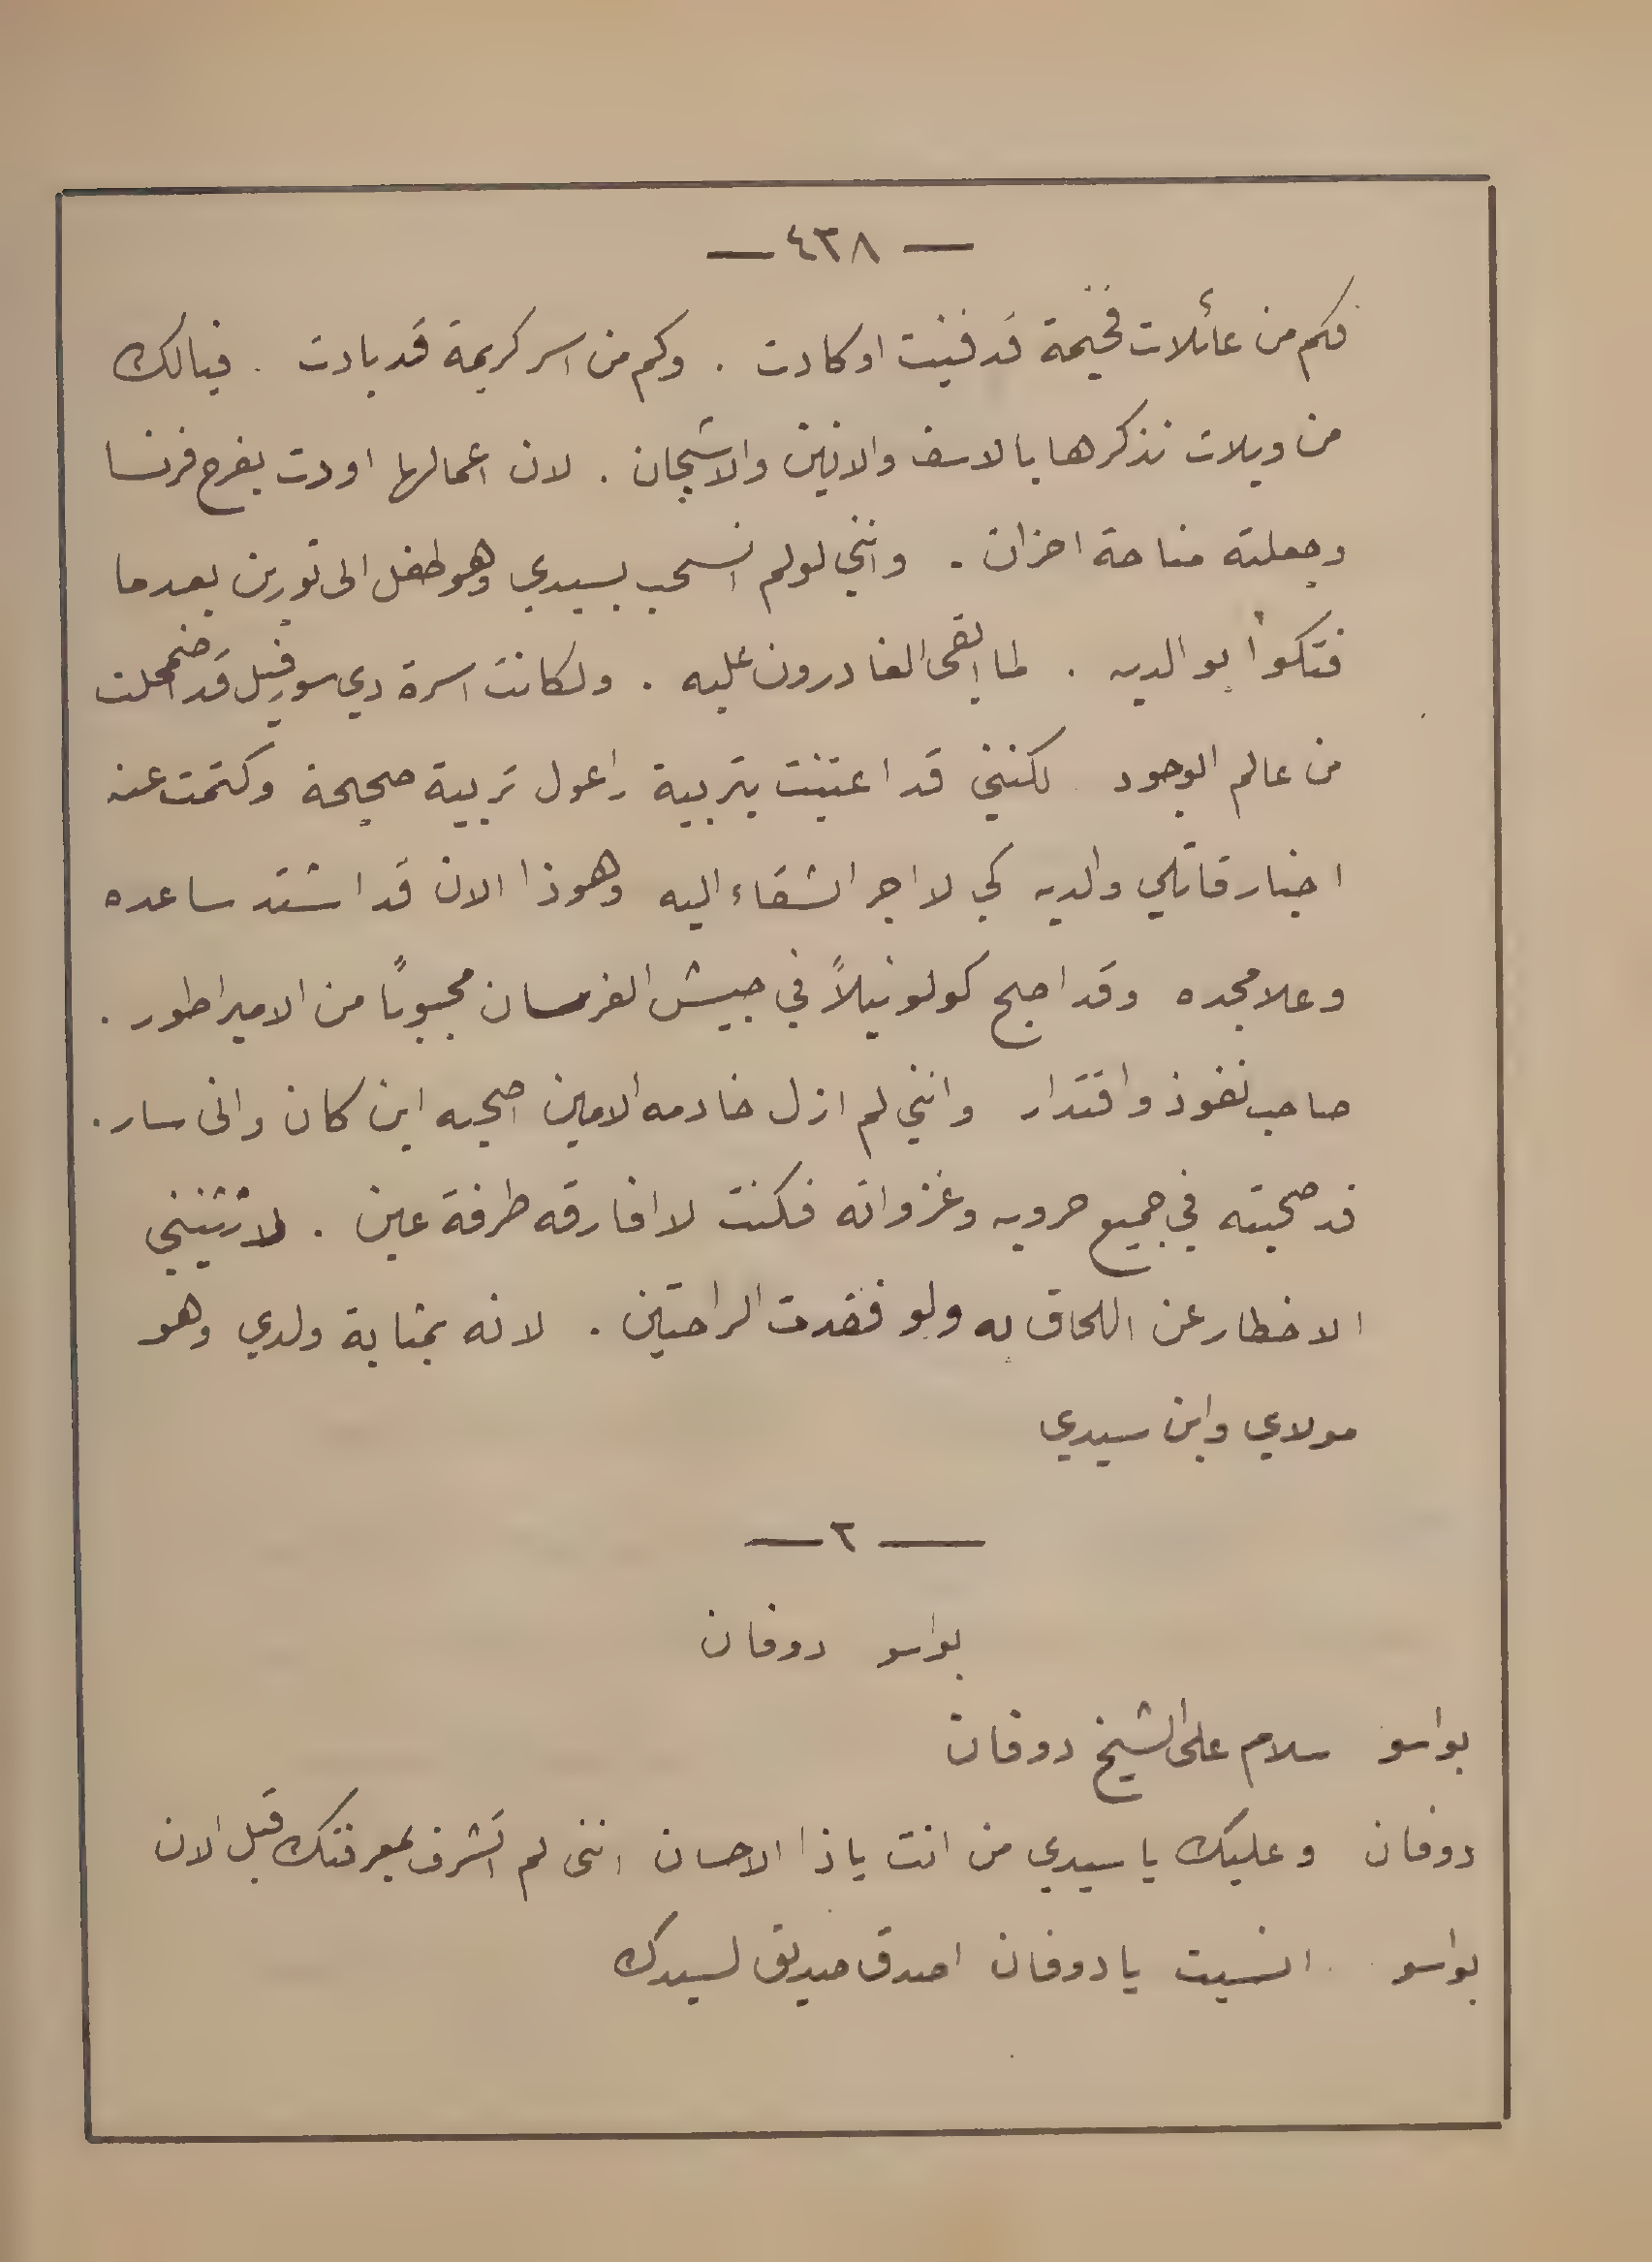 — ٤٣٨ —
فكم من عائلات فخيمة قد فنيت او كادت . وكم من اسر كريمة قد بادت . فيالك
من ويلات نذكرها بالاسف والانين والاشجان . لان اعمالها اودت بفرح فرنسا
وجعلته مناحة احزان . وانني لو لم انسحب بسيدي وهو طفل الى تورين بعدما
فتكوا بوالديه . لما ابقى الغادرون عليه . ولكانت اسرة دي سورفيل قد اضمحلت
من عالم الوجود لكنني قد اعتنيت بتربية راعول تربية صحيحة وكتمت عنه
اخبار قاتلي والديه كي لا اجر الشقاء اليه وهوذا الان قد اشتد ساعده
وعلا مجده وقد اصبح كولونيلاً في جيش الفرسان محبوباً من الامبراطور .
صاحب نفوذ واقتدار وانني لم ازل خادمه الامين اصحبه اين كان وانى سار .
قد صحبته في جميع حروبه وغزواته فكنت لا افارقه طرفة عين . لا تثنيني
الاخطار عن اللحاق به ولو فقدت الراحتين . لانه بمثابة ولدي وهو
مولاي وابن سيدي
— ٢ —
بواسو دوفان
بواسو سلام على الشيخ دوفان
دوفان وعليك يا سيدي من انت ياذا الاحسان انني لم اتشرف بمعرفتك قبل الان
بواسو انسيت يا دوفان اصدق صديق لسيدك